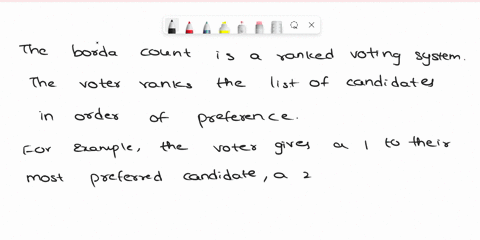 The borda count is a ranked voting system.
The voter ranks the list of candidates
in order of preference.
For Example, the voter gives a 1 to their
most preferred candidate, a 2